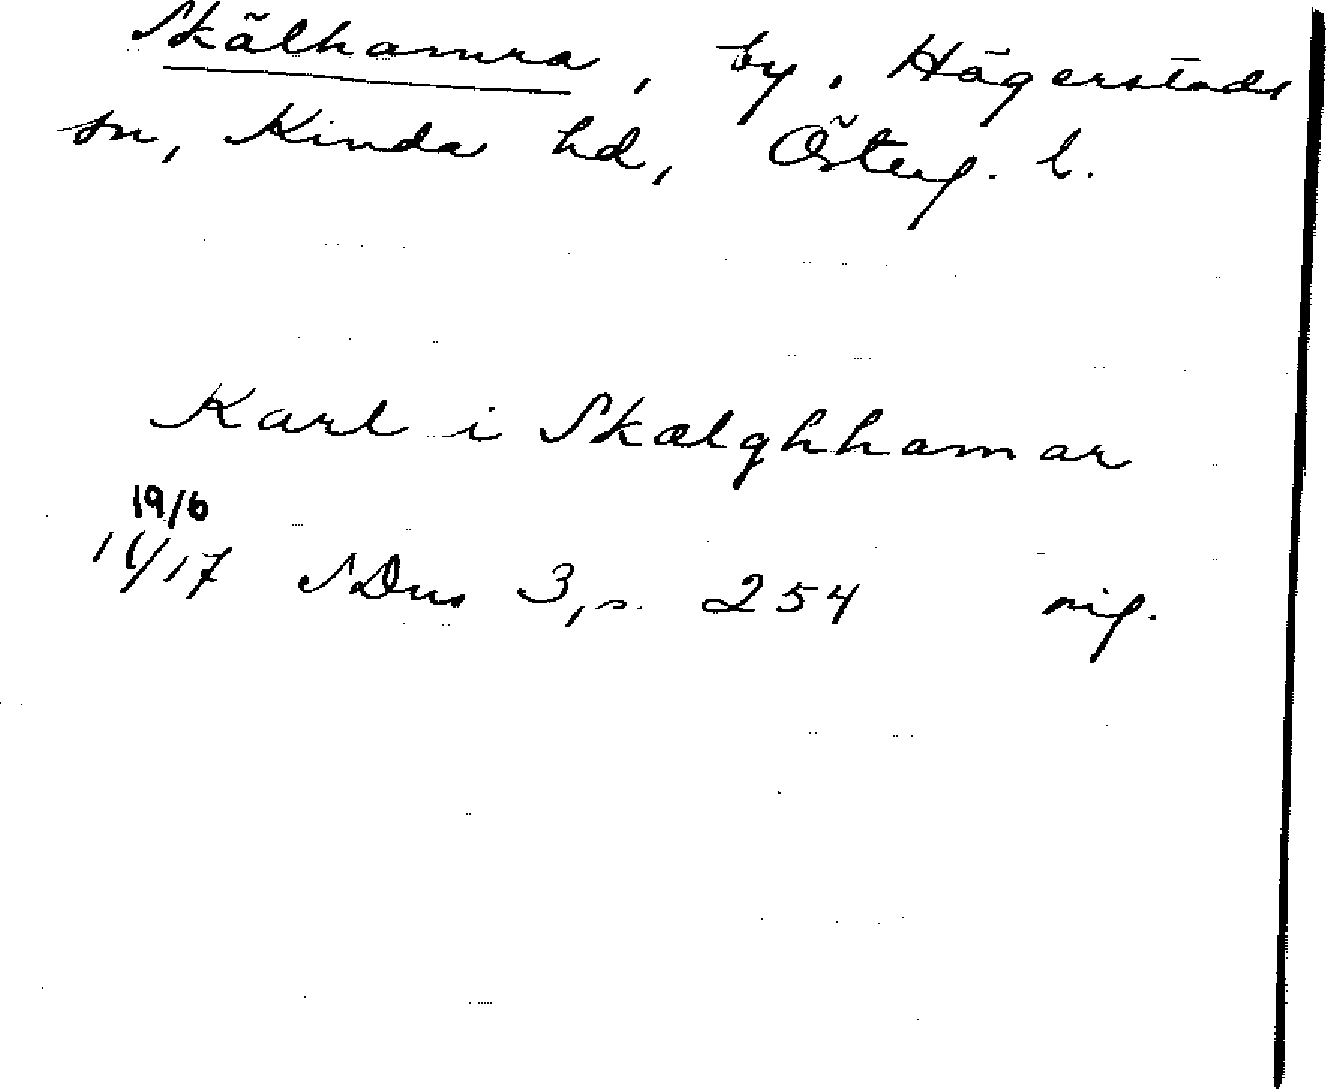 Skälhamra, by, Hägerstads
sn, Kinda hd, Österg. l.
Karl i Skælghhamar
19/6
1417 SDns 3, s. 254 sig.